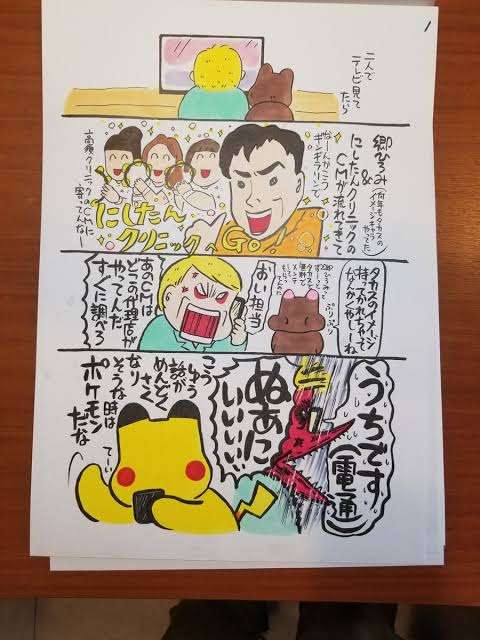 1
二人で
テレビ見て
たら
郷ひろみ
&
にしたんクリニックの
CMが流れてきて
なーんかこう
ギンギラリンで
にしたん
クリニックへGo!
高須クリニック
のCMに
寄ってんなー
タカスのイメージ
持ってかれちゃて
なんかやーね
ぷりぷり
おい担当
あのCMは
どこの代理店が
やってんだ
すぐに調べろ
うちです
(電通)
ぬぁに
いいいい
こう
ゆう
話が
めんどく
さく
なり
そうな時は
ポケモン
だな
てぃ